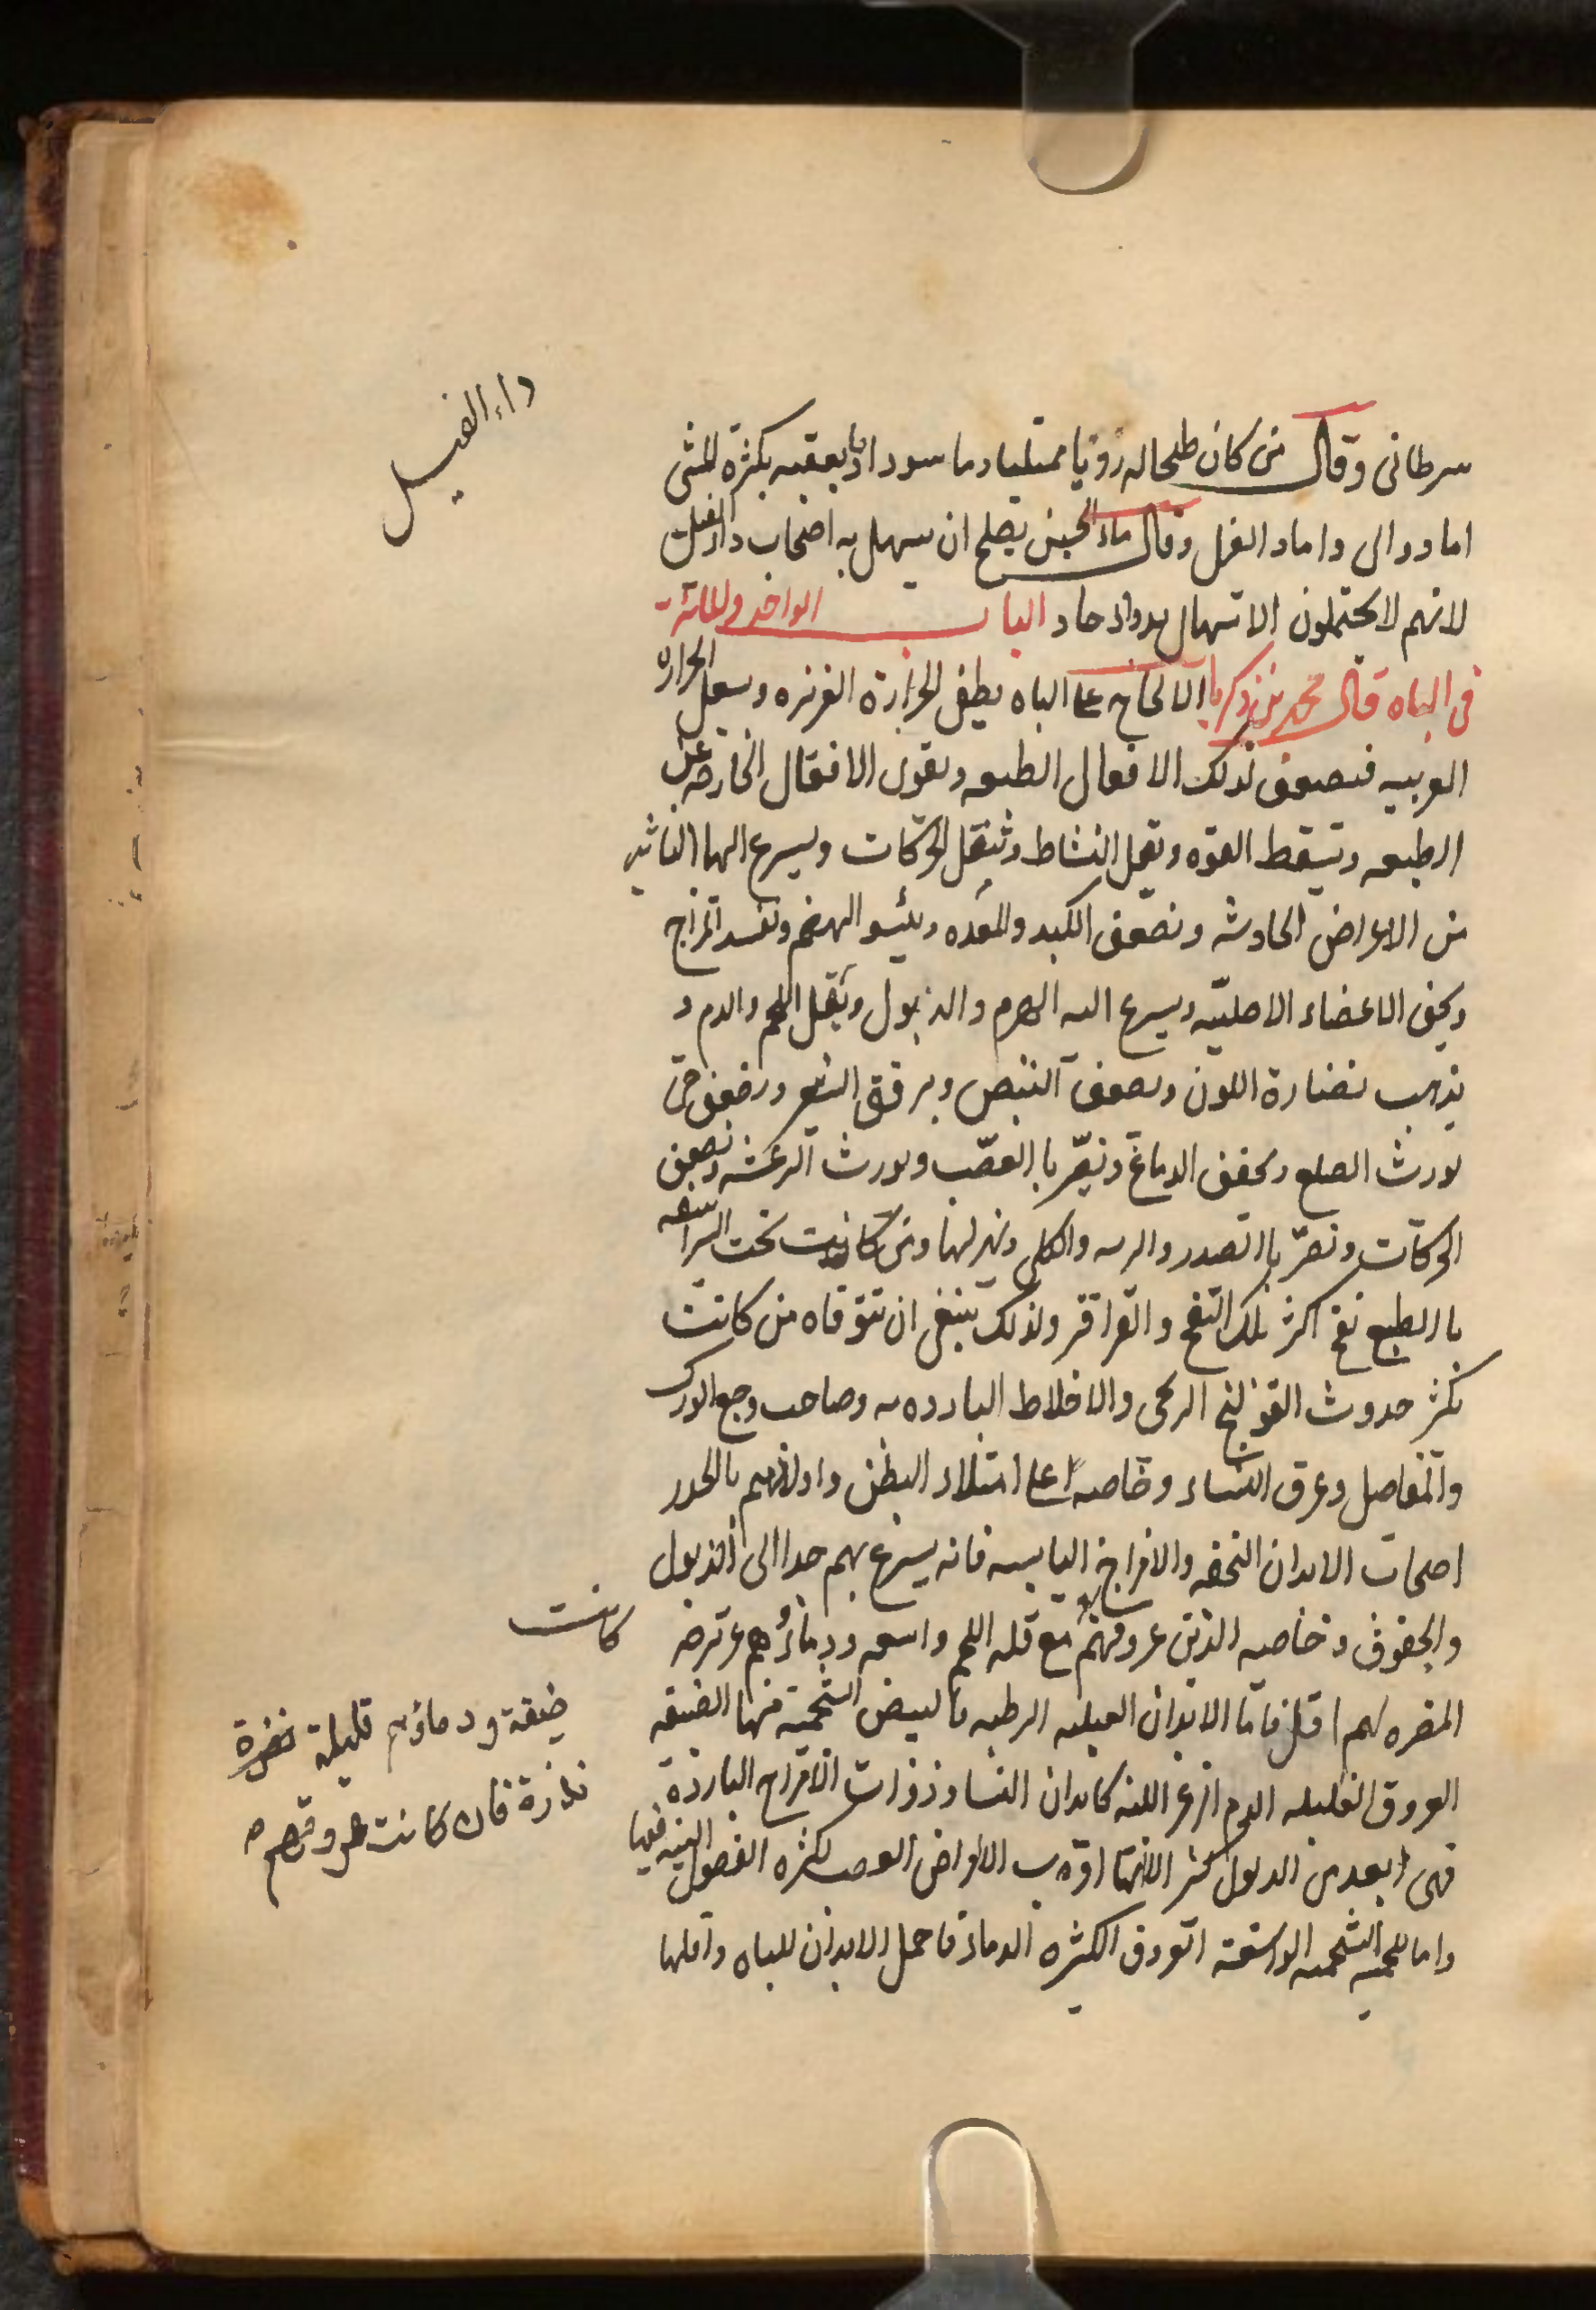 داء الفيل
سرطانى وقال من كان طحاله رديا ممتليا دما سوداويا يعقبه بكثرة المشى
اما دوالى واما داء الفيل وقال ماء الجبن يصلح ان يسهل به اصحاب داء الفيل
لانهم لا يحتملون الاسهال بدواء حاد الباب الواحد والمائة
فى الباه قال محمد بن زكريا الالحاح على الباه يطفى الحرارة الغريزه ويشعل الحراره
الغريبيه فيضعف لذلك الافعال الطبيعه ويقوى الافعال الخارجه عن
الطبيعه وتسقط القوه ويقل النشاط وتثقل الحركات ويسرع اليها التاثير
من الاعراض الحادثه ويضعف الكبد والمعده ويسئو الهضم ويفسد المزاج
ويجف الاعضاء الاصليّه ويسرع اليه الهرم والذبول ويقل اللحم والدم و
يذهب بنضارة اللون ويضعف النبض ويرقق الشعر ويضعف حتى
يورث الصلع ويجفف الدماغ ويضر باالعصب ويورث الرعشه ويضعف
الحركات ويضر باالصدر والريه والكلى ويهزلها ومن كانت تحت الشراسيف
باالطبع نفخ اكثر تلك النفخ والقراقر ولذلك ينبغى ان تتوقاه من كانت
يكثر حدوث القولنج الريحى والاخلاط البارده به وصاحب وجع الورك
والمفاصل وعرق النساء وخاصه على امتلاء البطن واولاهم بالحذر
اصحاب الابدان النحفه والامزاج اليابسه فانه يسرع بهم جدا الى الذبول
والجفوف وخاصه الذين عروقهم مع قله اللحم واسعه ودماؤهم غزيره
كانت
المضره لهم اقل فاما الابدان العبله الرطبه باالبيض الشحميه منها الضيقه
ضيقة ودماؤهم قليلة
العروق القليله الدم الزعر اللينه كابدان النساء وذوات الامزاج البارده
نذرة فان كانت عروقهم
فهى ابعد من الذبول الا انها اقرب الامراض العصب لكثره الفضول النيه فيها
واما اللحميه الشحميه الواسعة العروق الكثيره الدماء فاحمل الابدان للباه واقلها